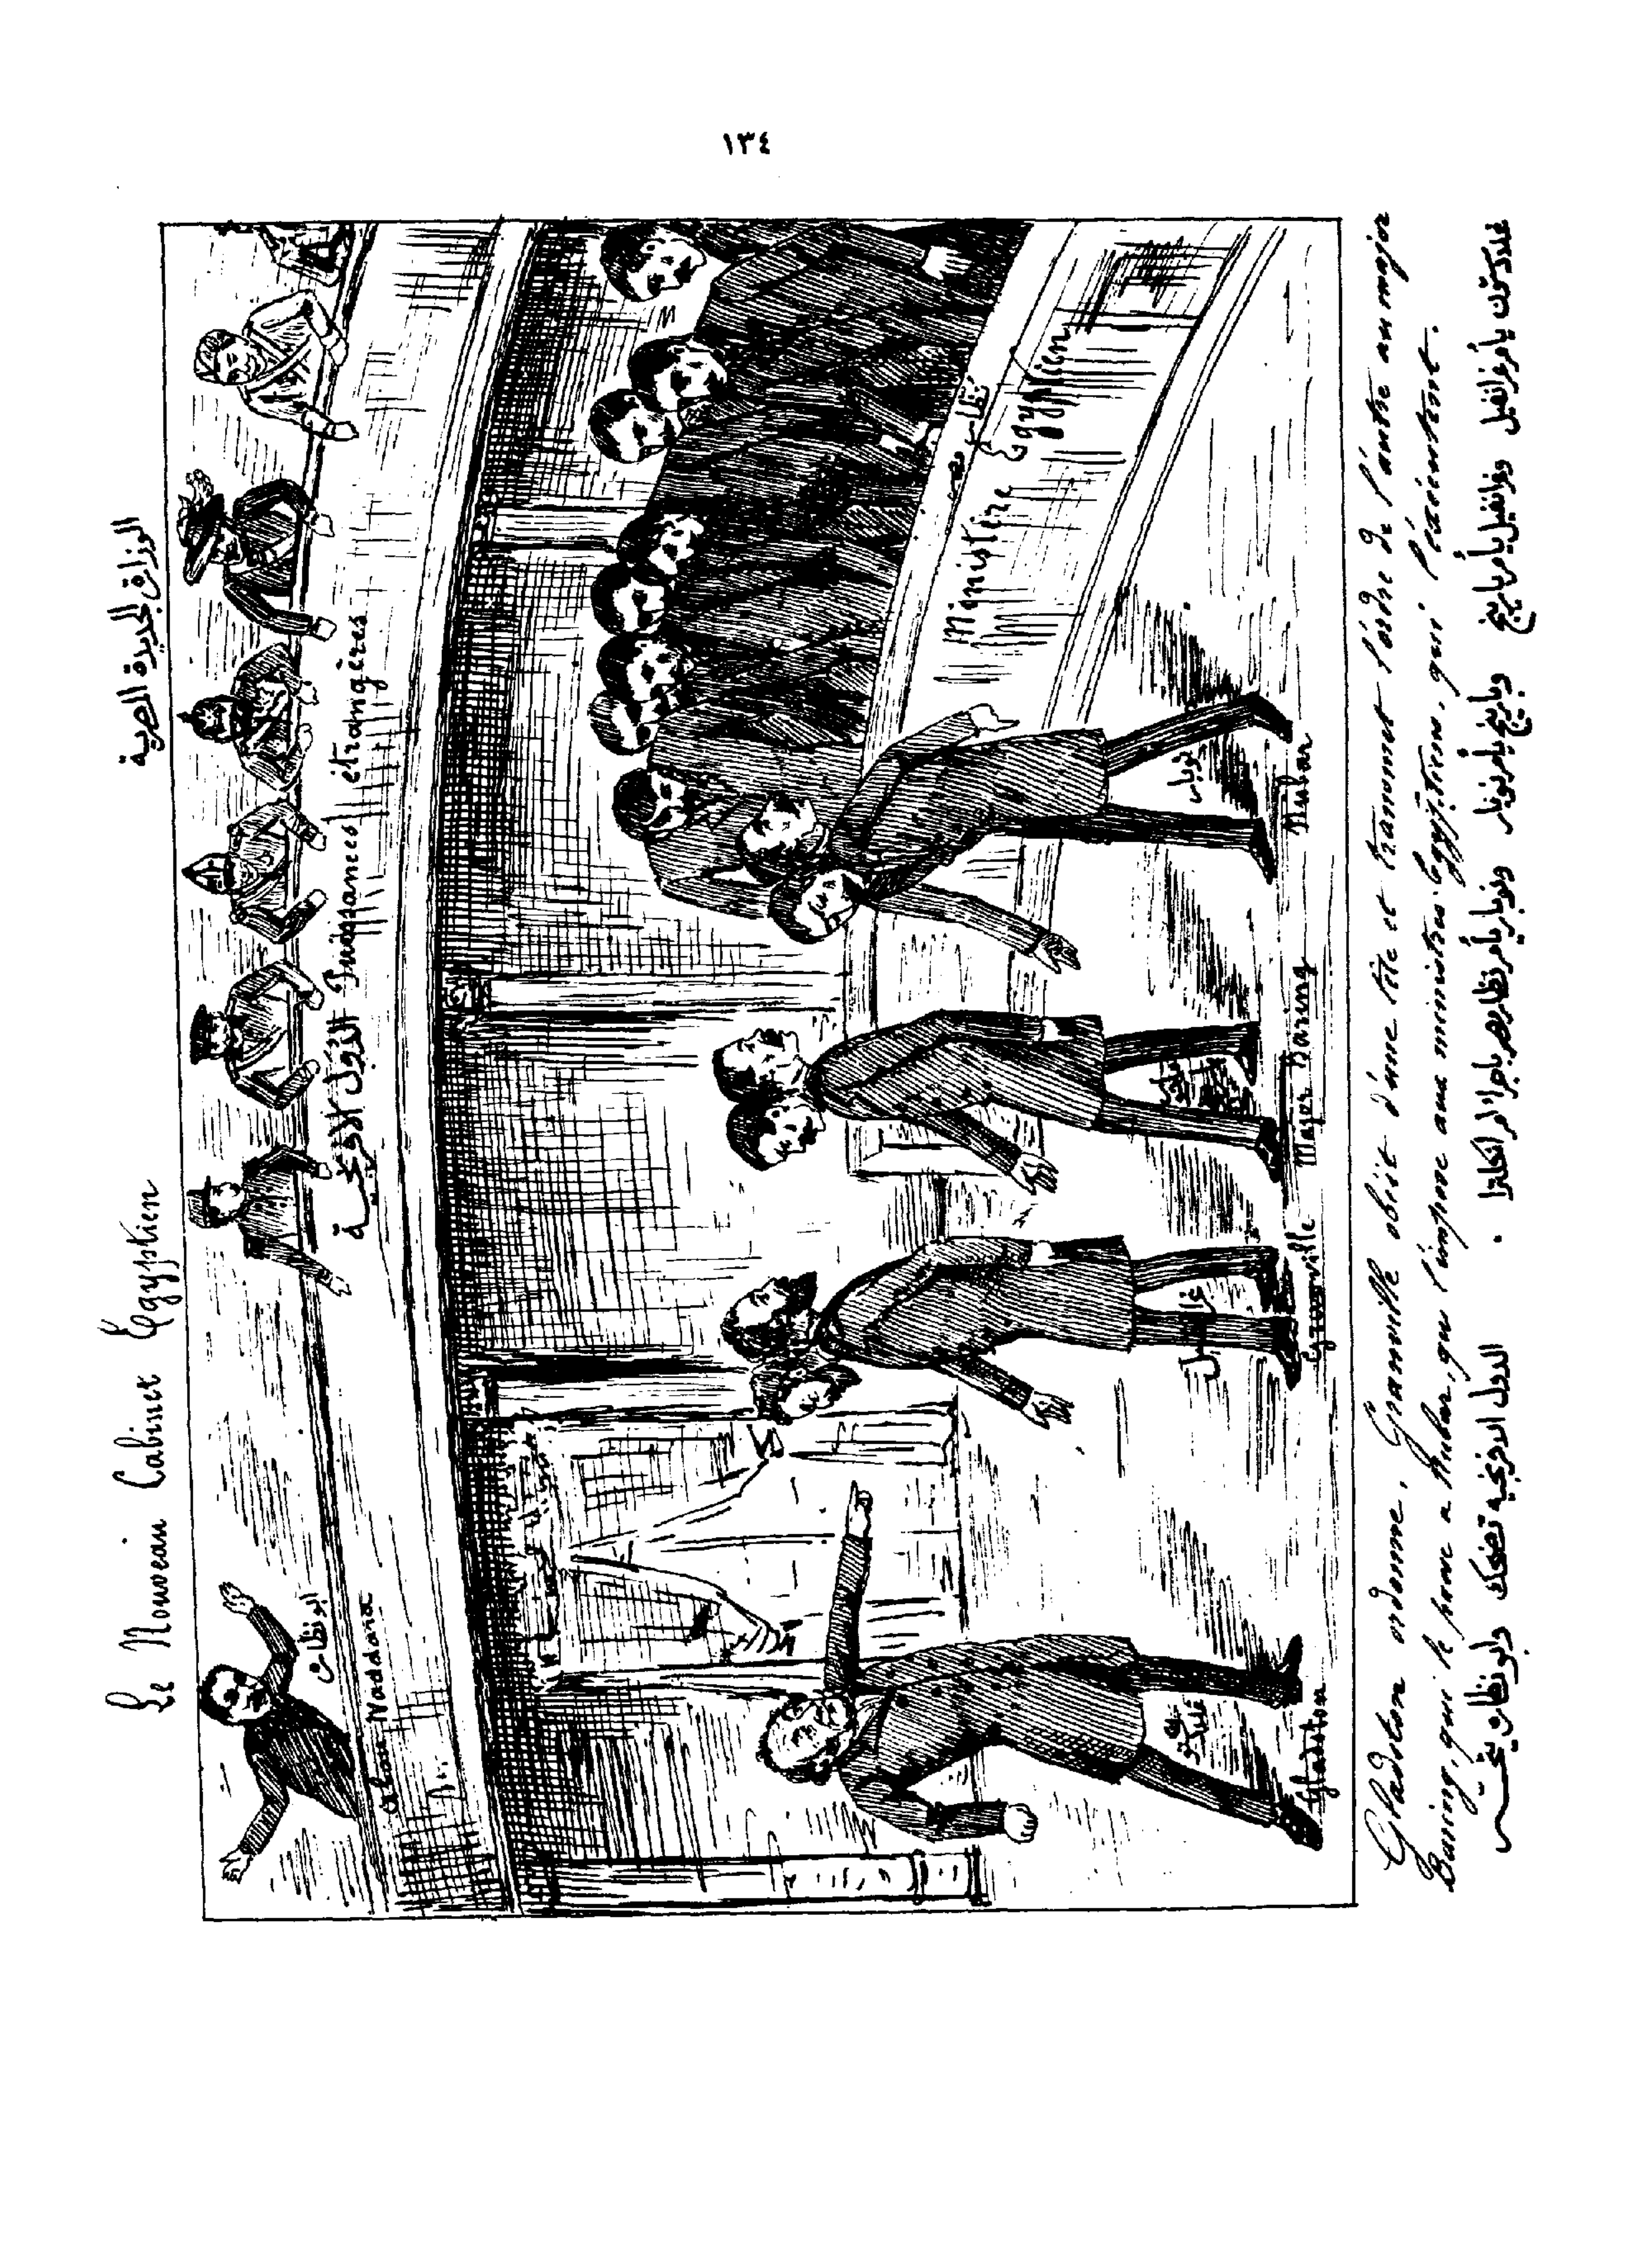 ١٣٤
Le Nouveau Cabinet Égyptien
الوزارة الجديدة المصرية
ابو نظارة
Abou Naddara
الدول الافرنجية
Puissances étrangères
نظار مصر
Ministère Égyptien
غلدستون
غرانفيل
نوبار
Gladston
Granville
Major Baring
Nubar
Gladston ordonne, Granville obéit d'une tête et transmet l'ordre de l'autre au major
Baring, qui le passe a Nubar, qui l'impose aux ministres Égyptiens, qui l'écoutent.
غلدستون يأمر غرانفيل وغرانفيل يأمر بارينغ وبارينغ يأمر نوبار ونوبار يأمر نظار مصر باجراء أمر انكلترا .
الدول الافرنجيه تضحك وابو نظارة